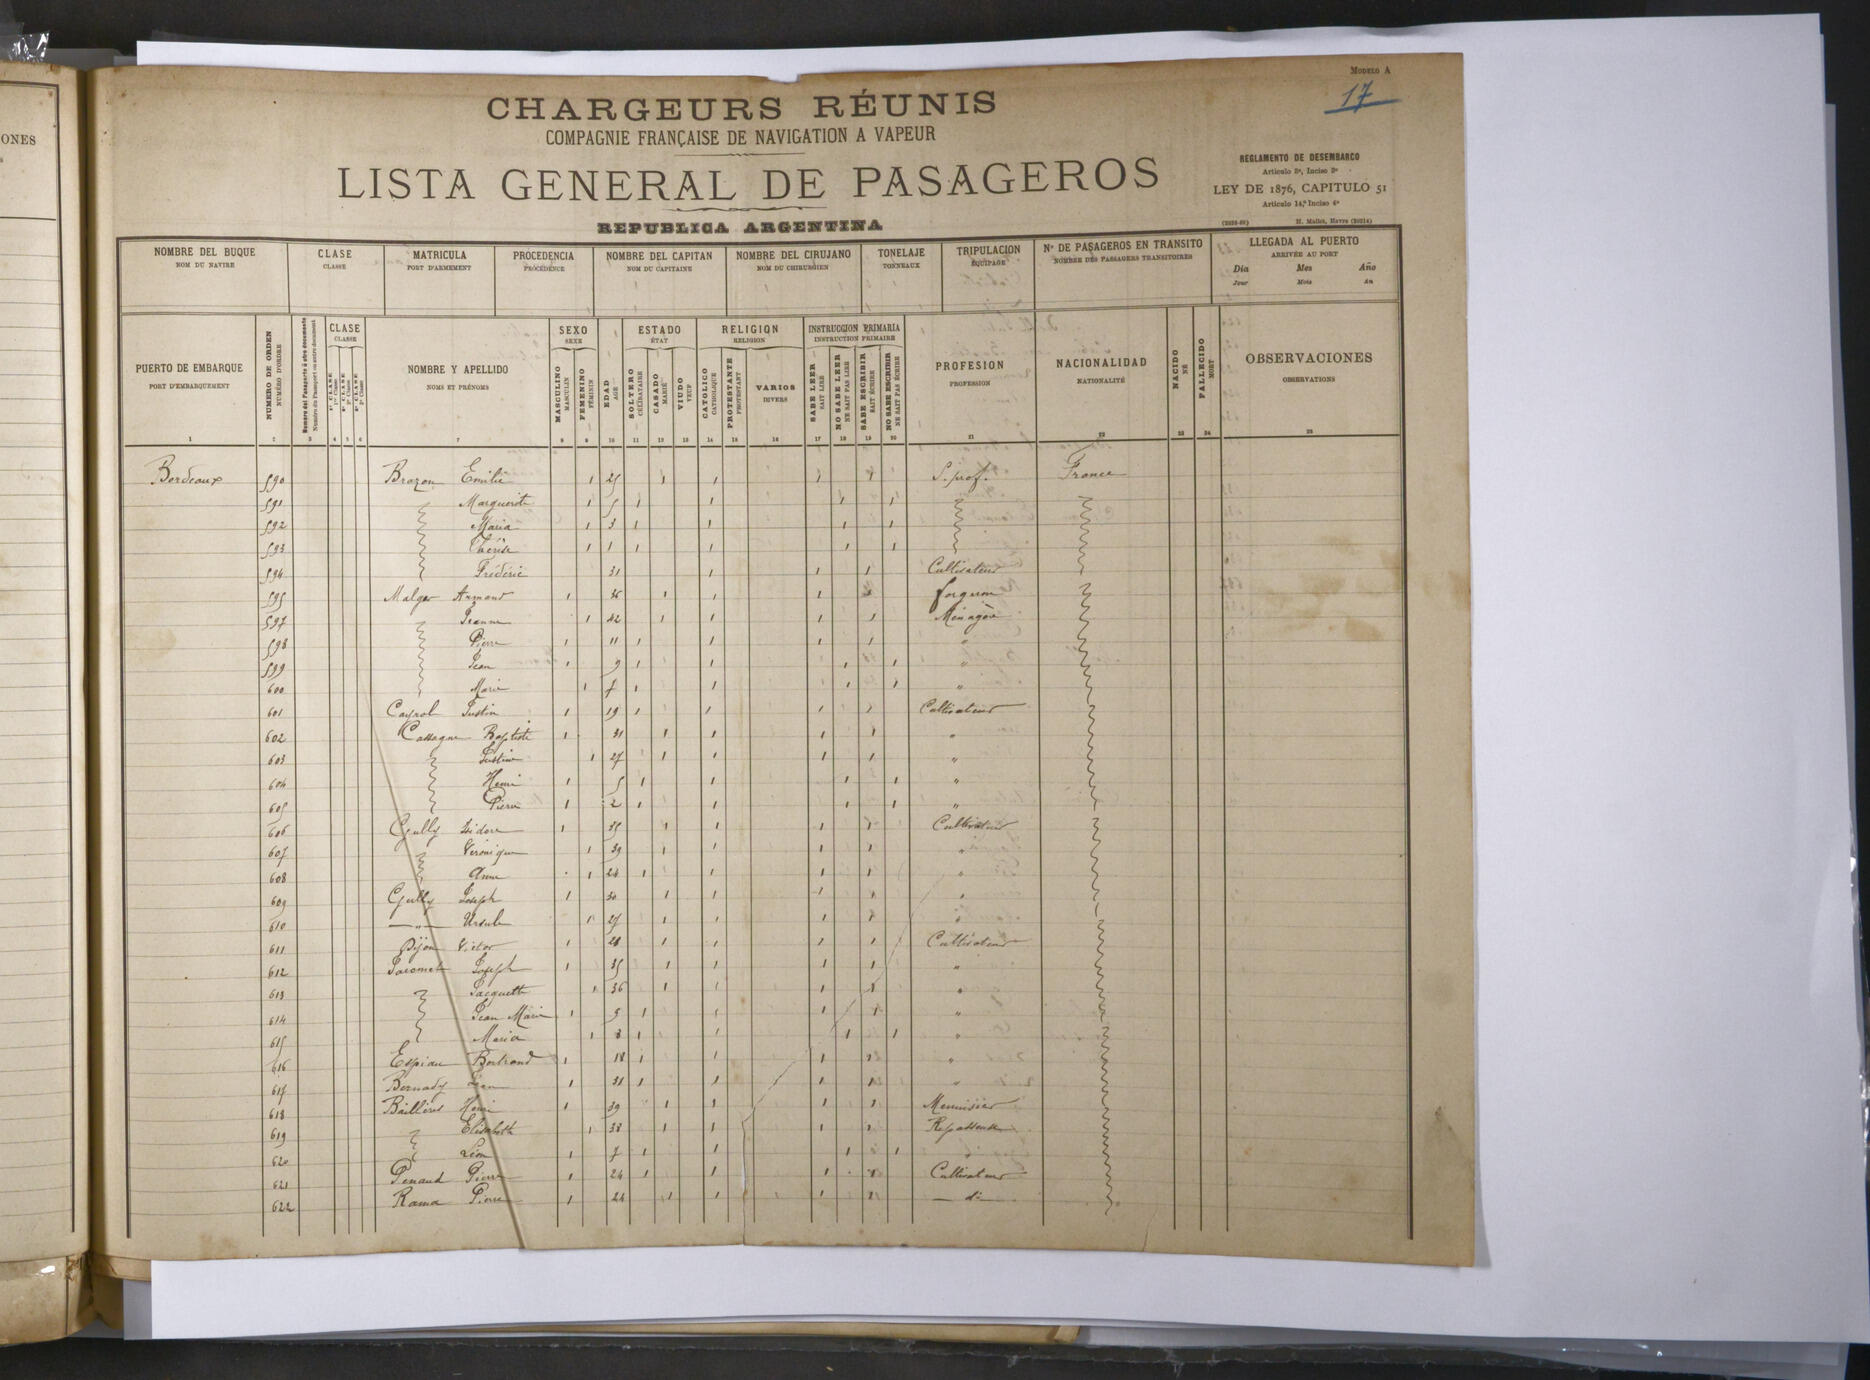 ONES
MODELO A
17
CHARGEURS RÉUNIS
COMPAGNIE FRANÇAISE DE NAVIGATION A VAPEUR
LISTA GENERAL DE PASAGEROS
REPUBLICA ARGENTINA
REGLAMENTO DE DESEMBARCO
Articulo 2º, Inciso 2º
LEY DE 1876, CAPITULO 51
Articulo 14º, Inciso 4º
H. Mallet, Havre (20214)
NOMBRE DEL BUQUE CLASE MATRICULA PROCEDENCIA NOMBRE DEL CAPITAN NOMBRE DEL CIRUJANO TONELAJE TRIPULACION Nº DE PASAGEROS EN TRANSITO LLEGADA AL PUERTO
NOM DU NAVIRE CLASSE PORT D'ARMEMENT PROCÉDENCE NOM DU CAPITAINE NOM DU CHIRURGIEN TONNEAUX ÉQUIPAGE NOMBRE DES PASSAGERS TRANSITOIRES ARRIVÉE AU PORT
Dia Mes Año
Jour Mois An
PUERTO DE EMBARQUE NUMERO DE ORDEN Numero del Pasaporte ú otro documento CLASE 1ª CLASE 2ª CLASE 3ª CLASE NOMBRE Y APELLIDO SEXO MASCULINO FEMENINO EDAD ESTADO SOLTERO CASADO VIUDO RELIGION CATOLICO PROTESTANTE VARIOS INSTRUCCION PRIMARIA SABE LEER NO SABE LEER SABE ESCRIBIR NO SABE ESCRIBIR PROFESION NACIONALIDAD NACIDO FALLECIDO OBSERVACIONES
PORT D'EMBARQUEMENT NUMÉRO D'ORDRE Numéro du Passeport ou autre document CLASSE 1re Classe 2e Classe 3e Classe NOMS ET PRÉNOMS SEXE MASCULIN FÉMININ AGE ÉTAT CÉLIBATAIRE MARIÉ VEUF RELIGION CATHOLIQUE PROTESTANT DIVERS INSTRUCTION PRIMAIRE SAIT LIRE NE SAIT PAS LIRE SAIT ÉCRIRE NE SAIT PAS ÉCRIRE PROFESSION NATIONALITÉ NÉ MORT OBSERVATIONS
1 2 3 4 5 6 7 8 9 10 11 12 13 14 15 16 17 18 19 20 21 22 23 24 25
Bordeaux 590 Brozon Emilie 1 25 1 1 1 1 S. prof. France
591 Marguerite 1 5 1 1 1 1
592 Maria 1 3 1 1 1 1
593 Thérèse 1 1 1 1 1 1
594 Frédéric 31 1 1 1 Cultivateur
595 Armand 1 36 1 1 1 forgeron
597 Jeanne 1 42 1 1 1 1 Ménagère
598 Pierre 1 11 1 1 1 1 "
599 Jean 1 9 1 1 1 1 "
600 Marie 1 7 1 1 1 1 "
601 Cayrol Justin 1 19 1 1 1 1 Cultivateur
602 Cassagne Baptiste 1 31 1 1 1 1 "
603 Justine 1 27 1 1 1 1 "
604 Henri 1 5 1 1 1 1 "
605 Pierre 1 2 1 1 1 1 "
606 Gully Isidore 1 35 1 1 1 1 Cultivateur
607 Veronique 1 39 1 1 1 1 "
608 Anne 1 24 1 1 1 1 "
609 Gully Joseph 1 30 1 1 1 1 "
610 — " — Ursule 1 25 1 1 1 1 "
611 Dijon Victor 1 28 1 1 1 1 Cultivateur
612 Joseph 1 35 1 1 1 1 "
613 Jacquette 1 36 1 1 1 1 "
614 Jean Marie 1 9 1 1 1 1 "
615 Maria 1 8 1 1 1 1 "
616 Espiau Bertrand 1 18 1 1 1 1 "
617 Bernady Jean 1 31 1 1 1 1 "
618 Baillères Henri 1 39 1 1 1 1 Menuisier
619 Elisabeth 1 38 1 1 1 1 Repasseuse
620 Léon 1 7 1 1 1 1 "
621 Penaud Pierre 1 24 1 1 1 1 Cultivateur
622 Rama Pierre 1 24 1 1 1 1 — d° —